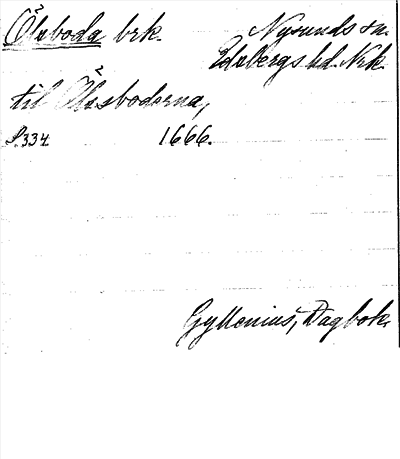 Ölsboda brk. Nysunds sn.
Edsbergs hd. Nrk.
til Ölssboderna,
S. 334. 1666.
Gyllenius, Dagbok.